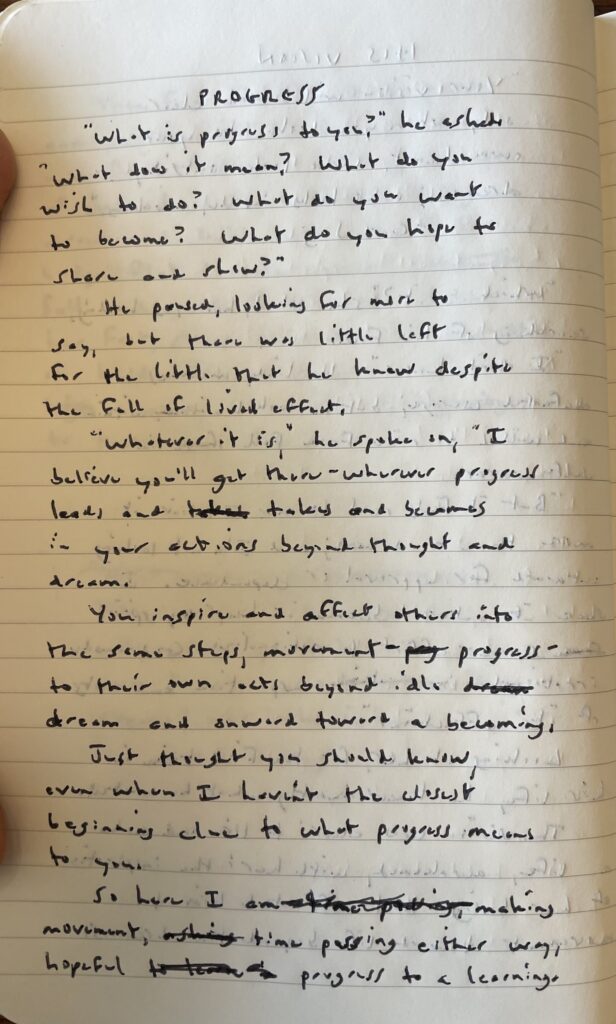 PROGRESS
"What is progress to you?" he asked.
"What does it mean? What do you
wish to do? What do you want
to become? What do you hope to
share and show?"
He paused, looking for more to
say, but there was little left
for the little that he knew despite
the full of lived effect.
"Whatever it is," he spoke on, "I
believe you'll get there - wherever progress
leads and takes and becomes
in your actions beyond thought and
dream.
You inspire and affect others into
the same steps, movement - progress -
to their own acts beyond idle
dream and onward toward a becoming.
Just thought you should know,
even when I haven't the closest
beginning clue to what progress means
to you.
So here I am making
movement, time passing either way,
hopeful progress to a learning.